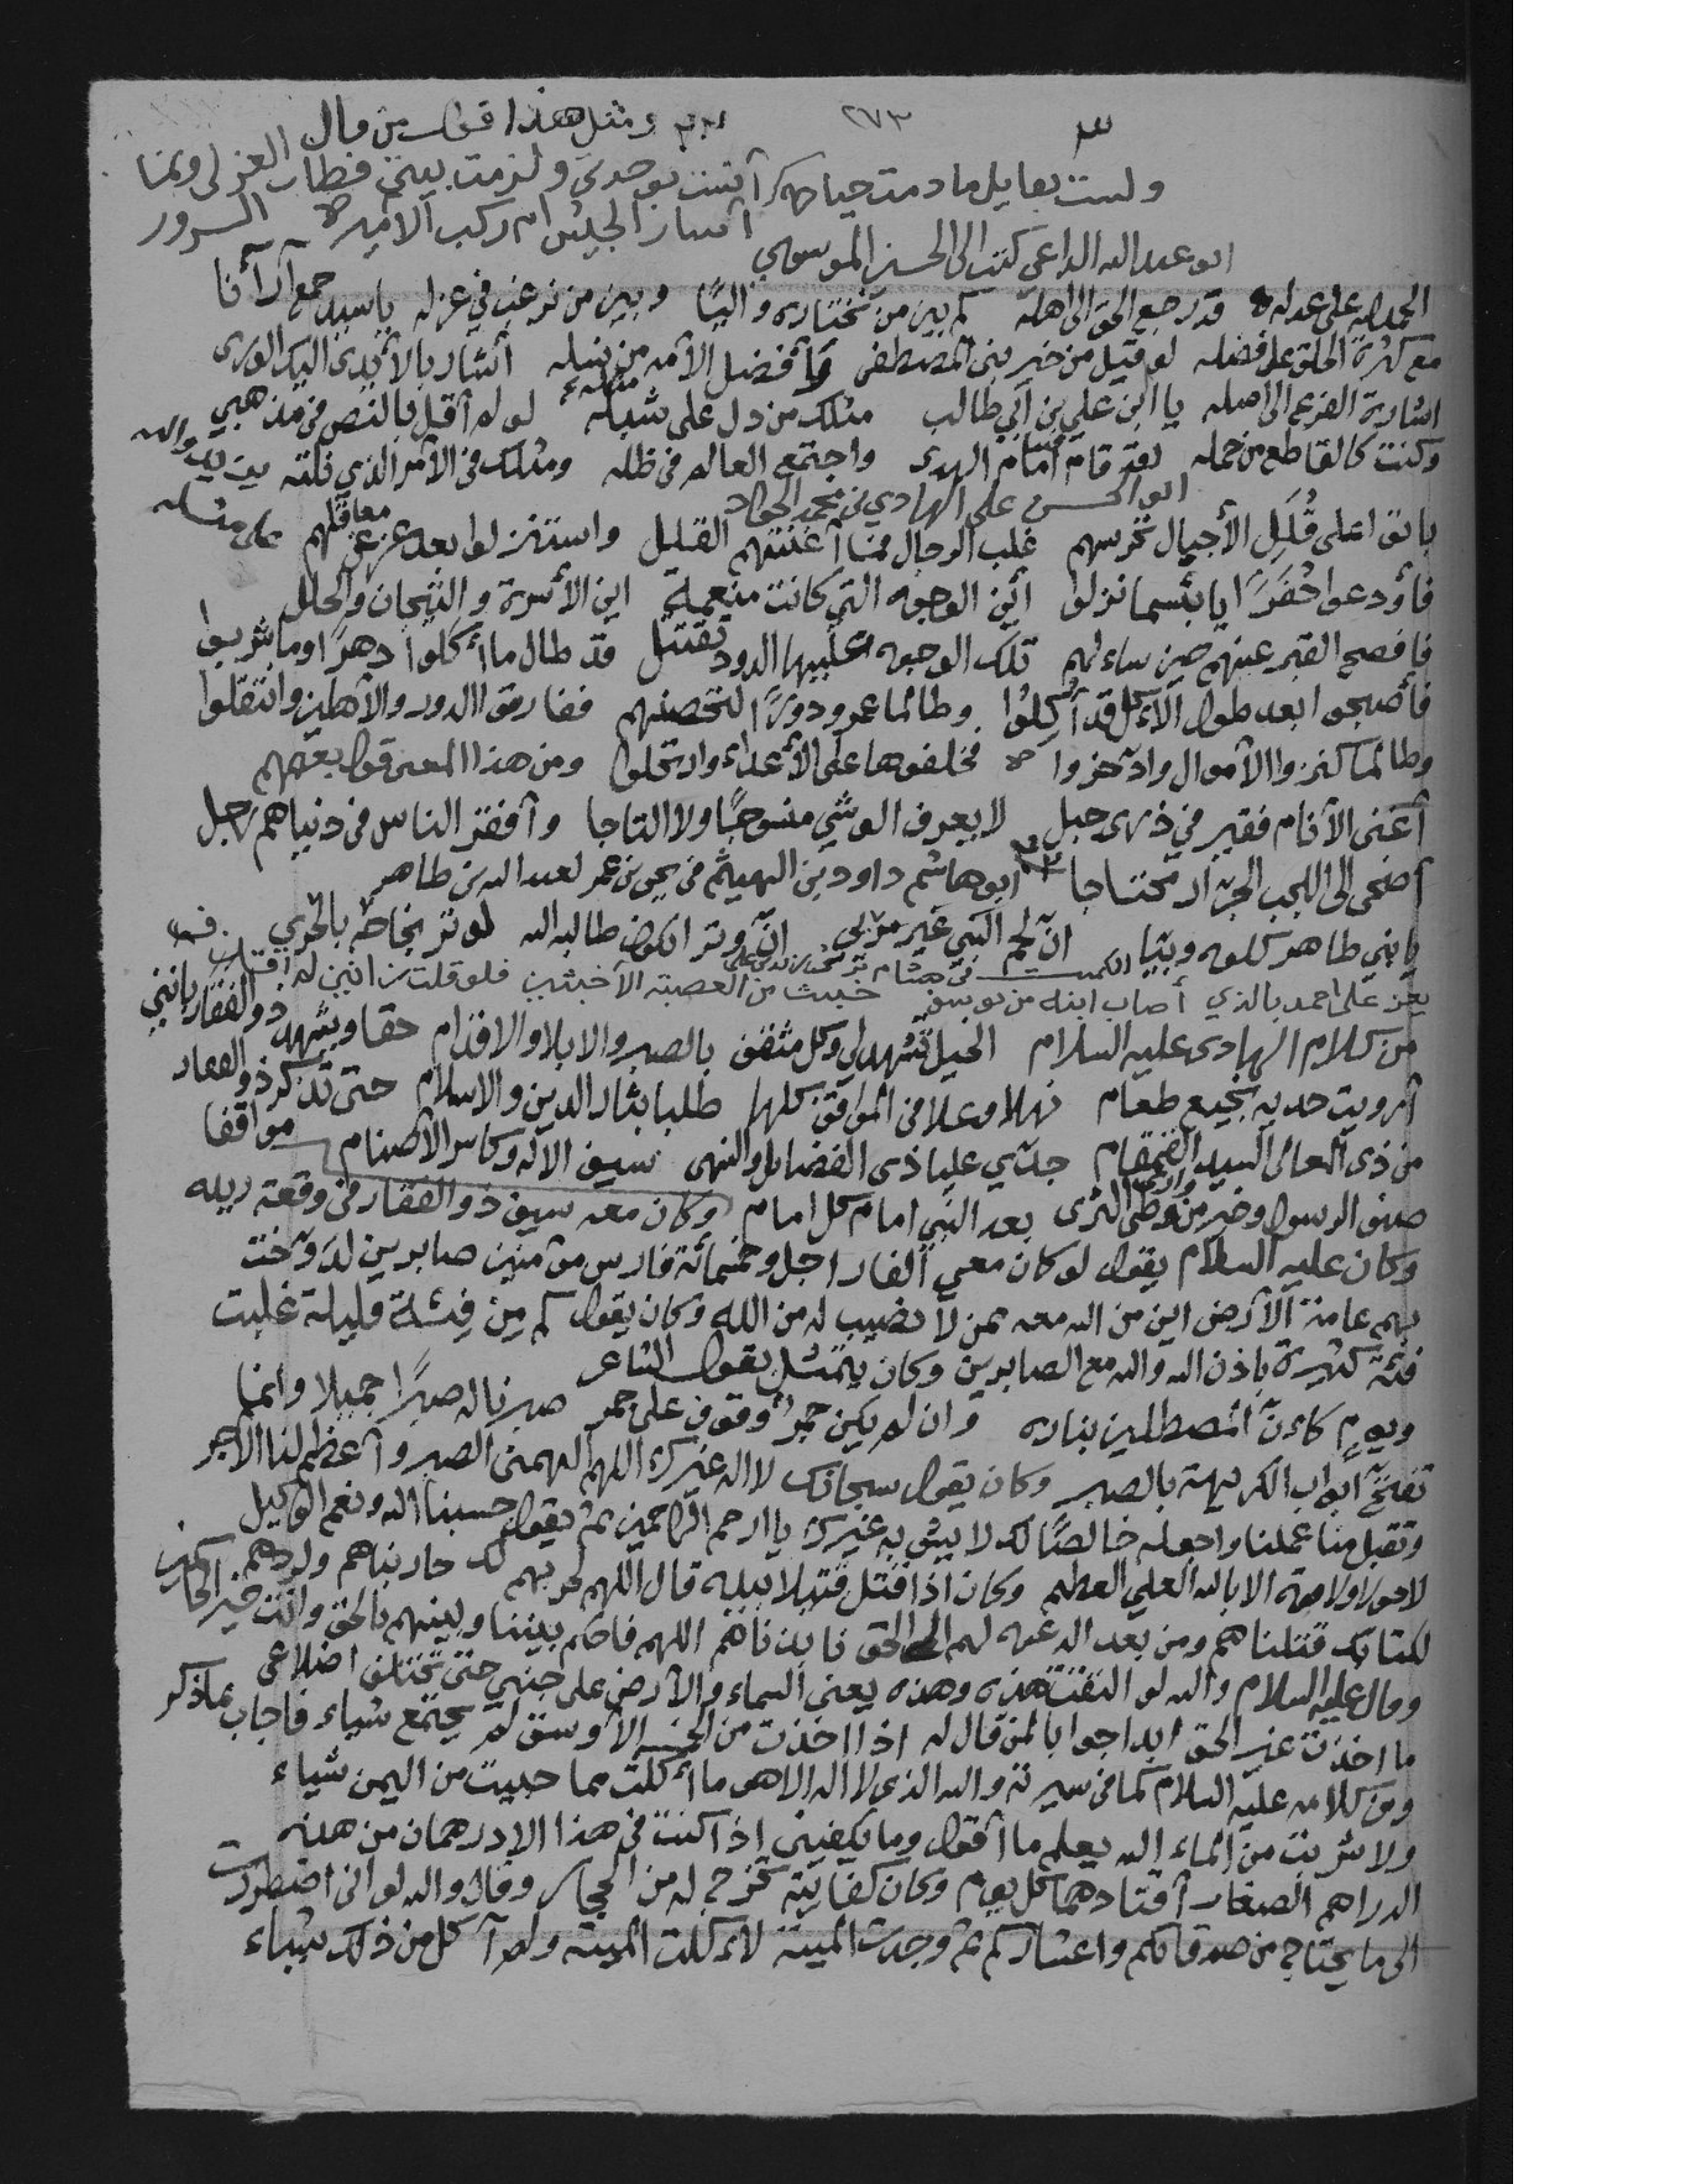 ٢٧٣
ومثل هذا قول من قال
ولست بقايل ما دمت حيا أنست بوحدتي ولزمت بيتي فطاب العز لي ونما
أسار الجيش ام ركب الامير السرور
ابو عبد الله الداعي كتب الى الحسين الموسوي
الحمد لله على عدله قد رجع الحق الى اهله كم بين من نختاره واليًا وبين من نرغب في عزله يا سيد جمع آرآنا
مع كثرة الخلق على فضله لو قيل من خير بني المصطفى وأفضل الأمه من نسله أشار بالأيدي اليك الورى
اشارة الفرع الى اصله يا ابن علي بن أبي طالب مثلك من دل على شبله لو لم أقل بالنص في مذهبي
وكنت كالقاطع من حمله لقد قام امام الهدى واجتمع العالم في ظله ومثلك في الأمر الذي نلته
ابو الحسن علي الهادي بن محمد الجواد
باتوا على قُلَلِ الأجبال تحرسهم غلب الرجال فما أغنتهم القلل واستنزلوا بعد عز عن معاقلهم
فأودعوا حُفَرًا يا بئسما نزلوا أين الوجوه التي كانت منعمة اين الأسرة والتيجان والحلل
فافصح القبر عنهم حين ساءلهم تلك الوجوه عليها الدود تقتتل قد طال ما أكلوا دهرًا وما شربوا
فأصبحوا بعد طول الأكل قد أُكِلُوا وطالما عمروا دورًا لتحصنهم ففارقوا الدور والأهلين وانتقلوا
وطالما كنزوا الأموال وادخروا فخلفوها على الأعداء وارتحلوا ومن هذا المعنى قول بعضهم
أغنى الأنام فقير في ذرى جبل لا يعرف الوشي منسوجًا ولا التاجا وأفقر الناس في دنياهم رجل
أضحى الى اللجب الجرار محتاجا ابو هاشم داود بن الهيثم في يحيى بن عمر لعبد الله بن طاهر
يا بني طاهر كلوه وبيًا ان لحم النبي غير مري انّ وترا يكون طالبه الله لوتر نجاحه بالحري
يعز على احمد بالذي أصاب ابنه من يوسف خبيث من العصبة الأخبثين فلو قلت زانين
من كلام الهادي عليه السلام الخيل تشهد لي وكل مثقف بالصبر والابلا والاقدام حقا ويشهد ذو الفقار بانني
أرويت حديه نجيع طغام نهلا وعلا في المواقف كلها طلبا بثار الدين والاسلام حتى تذكر ذو الفقار مواقفا
من ذي المعالي السيد القمقام جدّي عليا ذي الفضايل والنهى سيف الاله وكاسر الأصنام
صنو الرسول وخير من وطى الثرى بعد النبي امام كل امام وكان معه سيف ذو الفقار في وقعة
وكان عليه السلام يقول لو كان معي ألفا راجل وخمسمائة فارس مؤمنين صابرين لدوّخت
بهم عامة الأرض اين من الله معه ممن لا نصيب له من الله وكان يقول كم مِن فِئَة قليلة غلبت
فئة كثيرة باذن الله والله مع الصابرين وكان يتمثل بقول الشاعر
ويومٍ كاءنّ المصطلين بناره وان لم يكن جمرٌ وقوف على جمر صبرنا له صبرًا جميلا وانما
تفتح أبواب الكريهة بالصبر وكان يقول سبحانك لا اله غيرك اللهم ألهمني الصبر وأعظم لنا الأجر
وتقبل منا عملنا واجعله خالصًا لك لا يشوبه غيرك يا ارحم الراحمين ثم يقول حسبنا الله ونعم الوكيل
لا حول ولا قوة الا بالله العلي العظيم وكان اذا قتل قتيلا بيده قال اللهم لك حاربناهم
لكتابك قتلناهم ومن بعد الدعوة لهم الى الحق نابذناهم اللهم فاحكم بيننا وبينهم بالحق وانت خير الحاكمين
وقال عليه السلام والله لو التفت هذه وهذه يعني السماء والأرض على جنبي حتى تختلف اضلاعي
ما اخذت غير الحق ابدا جوابا لمن قال له اذا اخذت من الخمسة الأوسق لم يجتمع شياء فاجاب بما ذكر
ومن كلامه عليه السلام كما في سيرته والله الذي لا اله الا هو ما أكلت مما جبيت من اليمن شياء
ولا شربت من الماء الله يعلم ما أقول وما يكفيني اذا كنت في هذا الا درهمان من هذه
الدراهم الصغار أقتادهما كل يوم وكان كفايته تخرج له من الحجاز وقال والله لو اني اضطررت
الى ما يحتاج من صدقاتكم واعشاركم ثم وجدت الميتة لأكلت الميتة ولم آكل من ذلك شياء